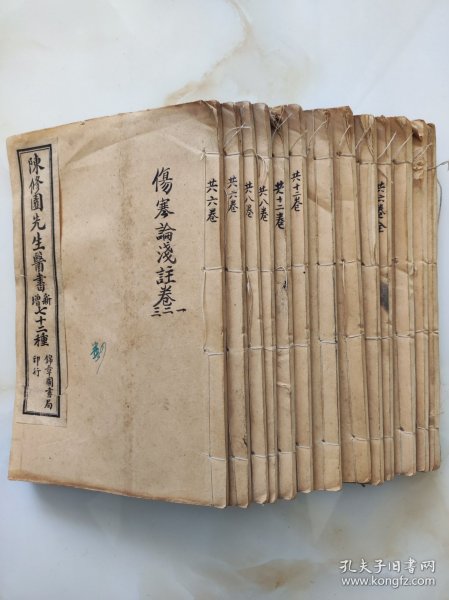 陳修園先生醫書新增七十二種
錦章圖書局
印行
傷寒論淺註卷一二三
共六卷
共六卷
共八卷
共八卷
共十二卷
共十二卷
共六卷全
孔夫子旧书网
www.kongfz.com